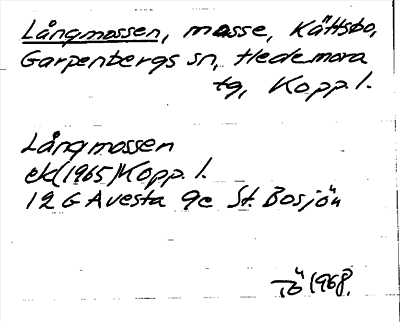 Långmossen, mosse, Kättsbo,
Garpenbergs sn, Hedemora
tg, Kopp. l.
Långmossen
ek(1965)Kopp. l.
12 G Avesta 9e St. Bosjön
TÖ 1968.